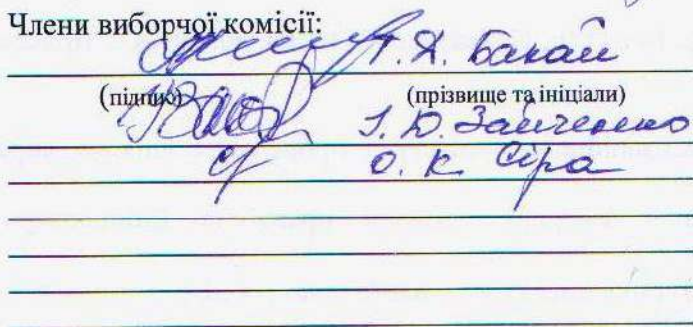 Члени виборчої комісії:
Т. Я. Бакай
(підпис) (прізвище та ініціали)
І. Ю. Зайченко
О. К. Сіра